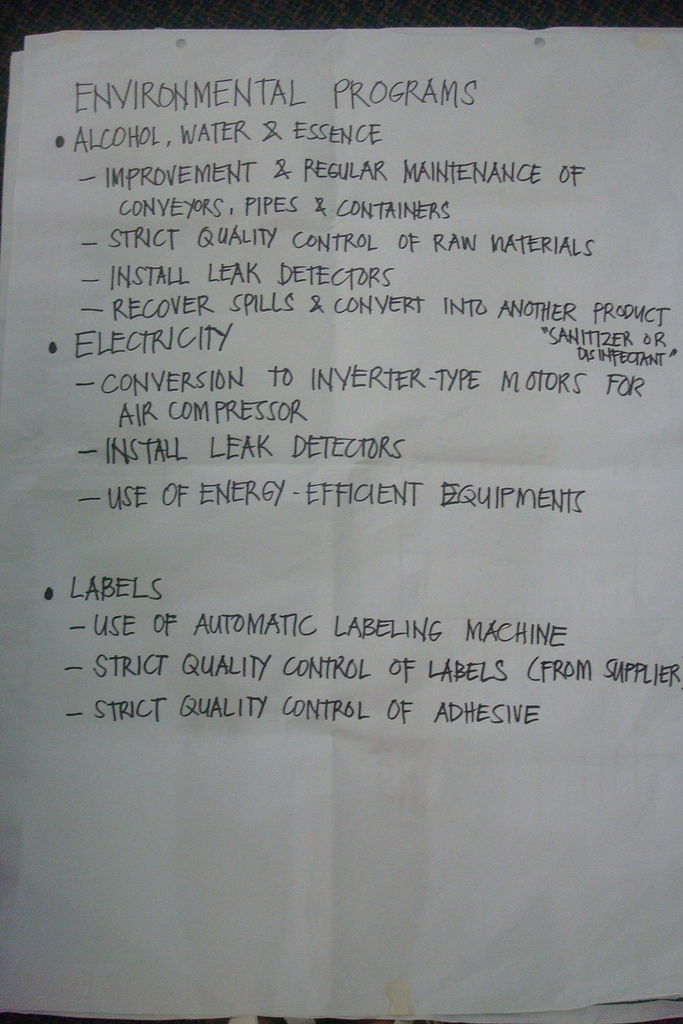 ENVIRONMENTAL PROGRAMS
• ALCOHOL, WATER & ESSENCE
– IMPROVEMENT & REGULAR MAINTENANCE OF
CONVEYORS, PIPES & CONTAINERS
– STRICT QUALITY CONTROL OF RAW MATERIALS
– INSTALL LEAK DETECTORS
– RECOVER SPILLS & CONVERT INTO ANOTHER PRODUCT
"SANITIZER OR
DISINFECTANT"
• ELECTRICITY
– CONVERSION TO INVERTER-TYPE MOTORS FOR
AIR COMPRESSOR
– INSTALL LEAK DETECTORS
– USE OF ENERGY-EFFICIENT EQUIPMENTS
• LABELS
– USE OF AUTOMATIC LABELING MACHINE
– STRICT QUALITY CONTROL OF LABELS (FROM SUPPLIER)
– STRICT QUALITY CONTROL OF ADHESIVE